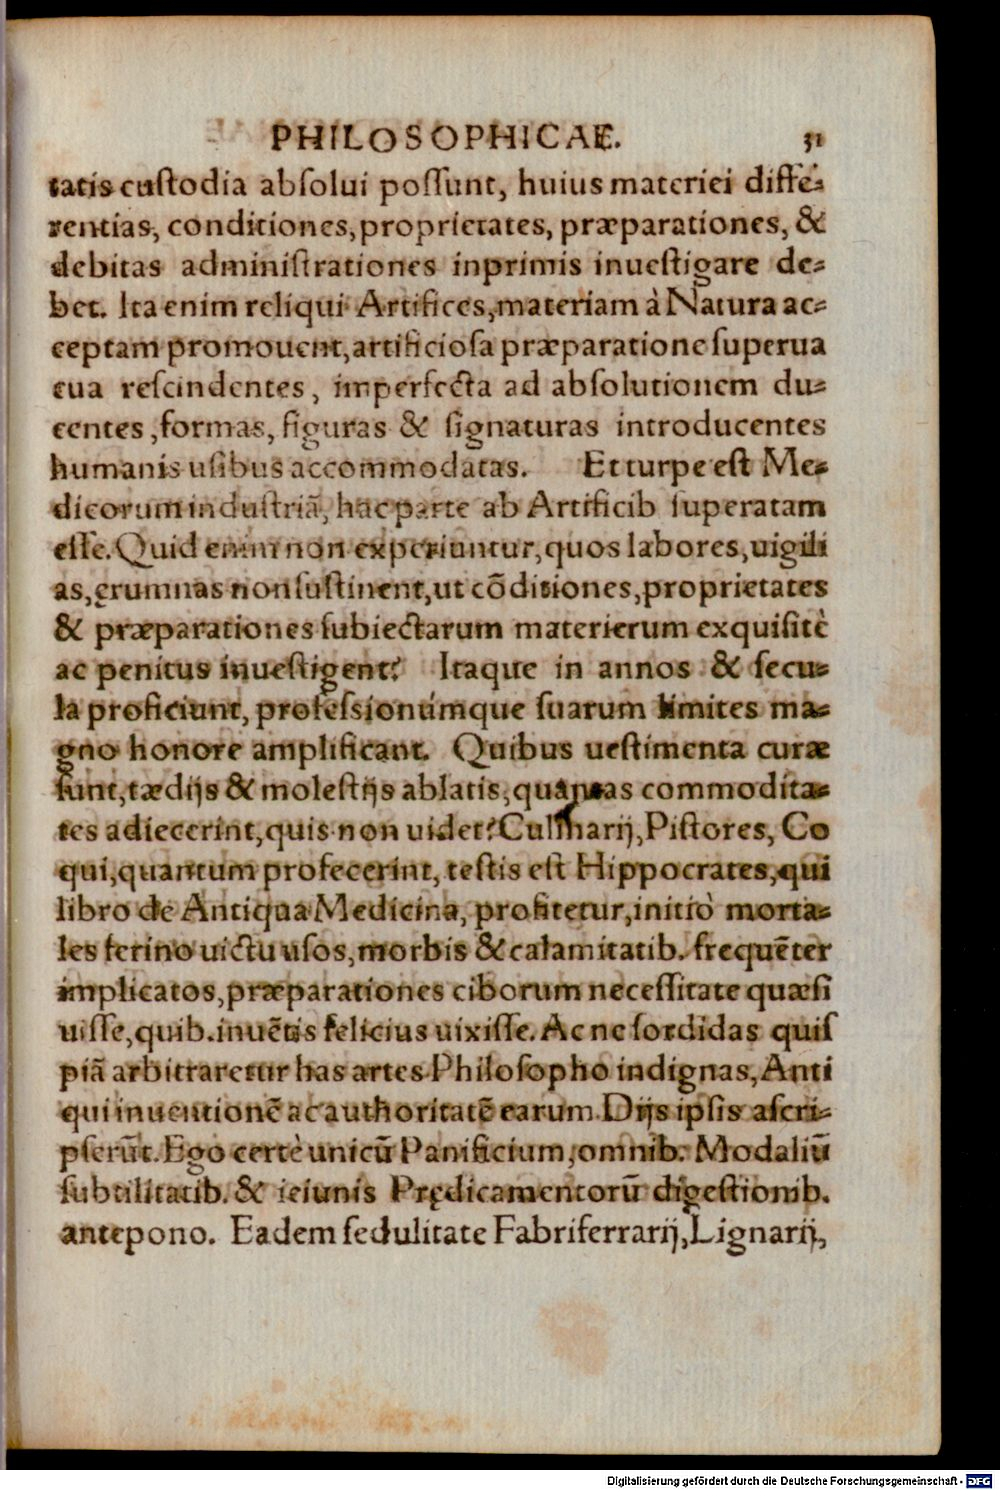 PHILOSOPHICAE. 31
tatis custodia absolui possunt, huius materiei diffe-
rentias, conditiones, proprietates, præparationes, &
debitas administrationes inprimis inuestigare de-
bet. Ita enim reliqui Artifices, materiam à Natura ac-
ceptam promouent, artificiosa præparatione superua
cua rescindentes, imperfecta ad absolutionem du-
centes, formas, figuras & signaturas introducentes
humanis usibus accommodatas. Et turpe est Me-
dicorum industriã, hac parte ab Artificib superatam
esse. Quid enim non experiuntur, quos labores, uigili
as, ęrumnas non sustinent, ut cõditiones, proprietates
& præparationes subiectarum materierum exquisitè
ac penitus inuestigent? Itaque in annos & secu-
la proficiunt, professionúmque suarum limites ma-
gno honore amplificant. Quibus uestimenta curæ
sunt, tædijs & molestijs ablatis, quantas commodita-
tes adiecerint, quis non uidet? Culinarij, Pistores, Co
qui, quantum profecerint, testis est Hippocrates, qui
libro de Antiqua Medicina, profitetur, initiò morta-
les ferino uictu usos, morbis & calamitatib. frequẽter
implicatos, præparationes ciborum necessitate quæsi
uisse, quib. inuẽtis felicius uixisse. Ac ne sordidas quis
piã arbitraretur has artes Philosopho indignas, Anti
qui inuentionẽ ac authoritatẽ earum Dijs ipsis ascri-
pserũt. Ego certè unicũ Panificium, omnib. Modaliũ
subtilitatib. & ieiunis Prędicamentorũ digestionib.
antepono. Eadem sedulitate Fabriferrarij, Lignarij,
Digitalisierung gefördert durch die Deutsche Forschungsgemeinschaft - DFG